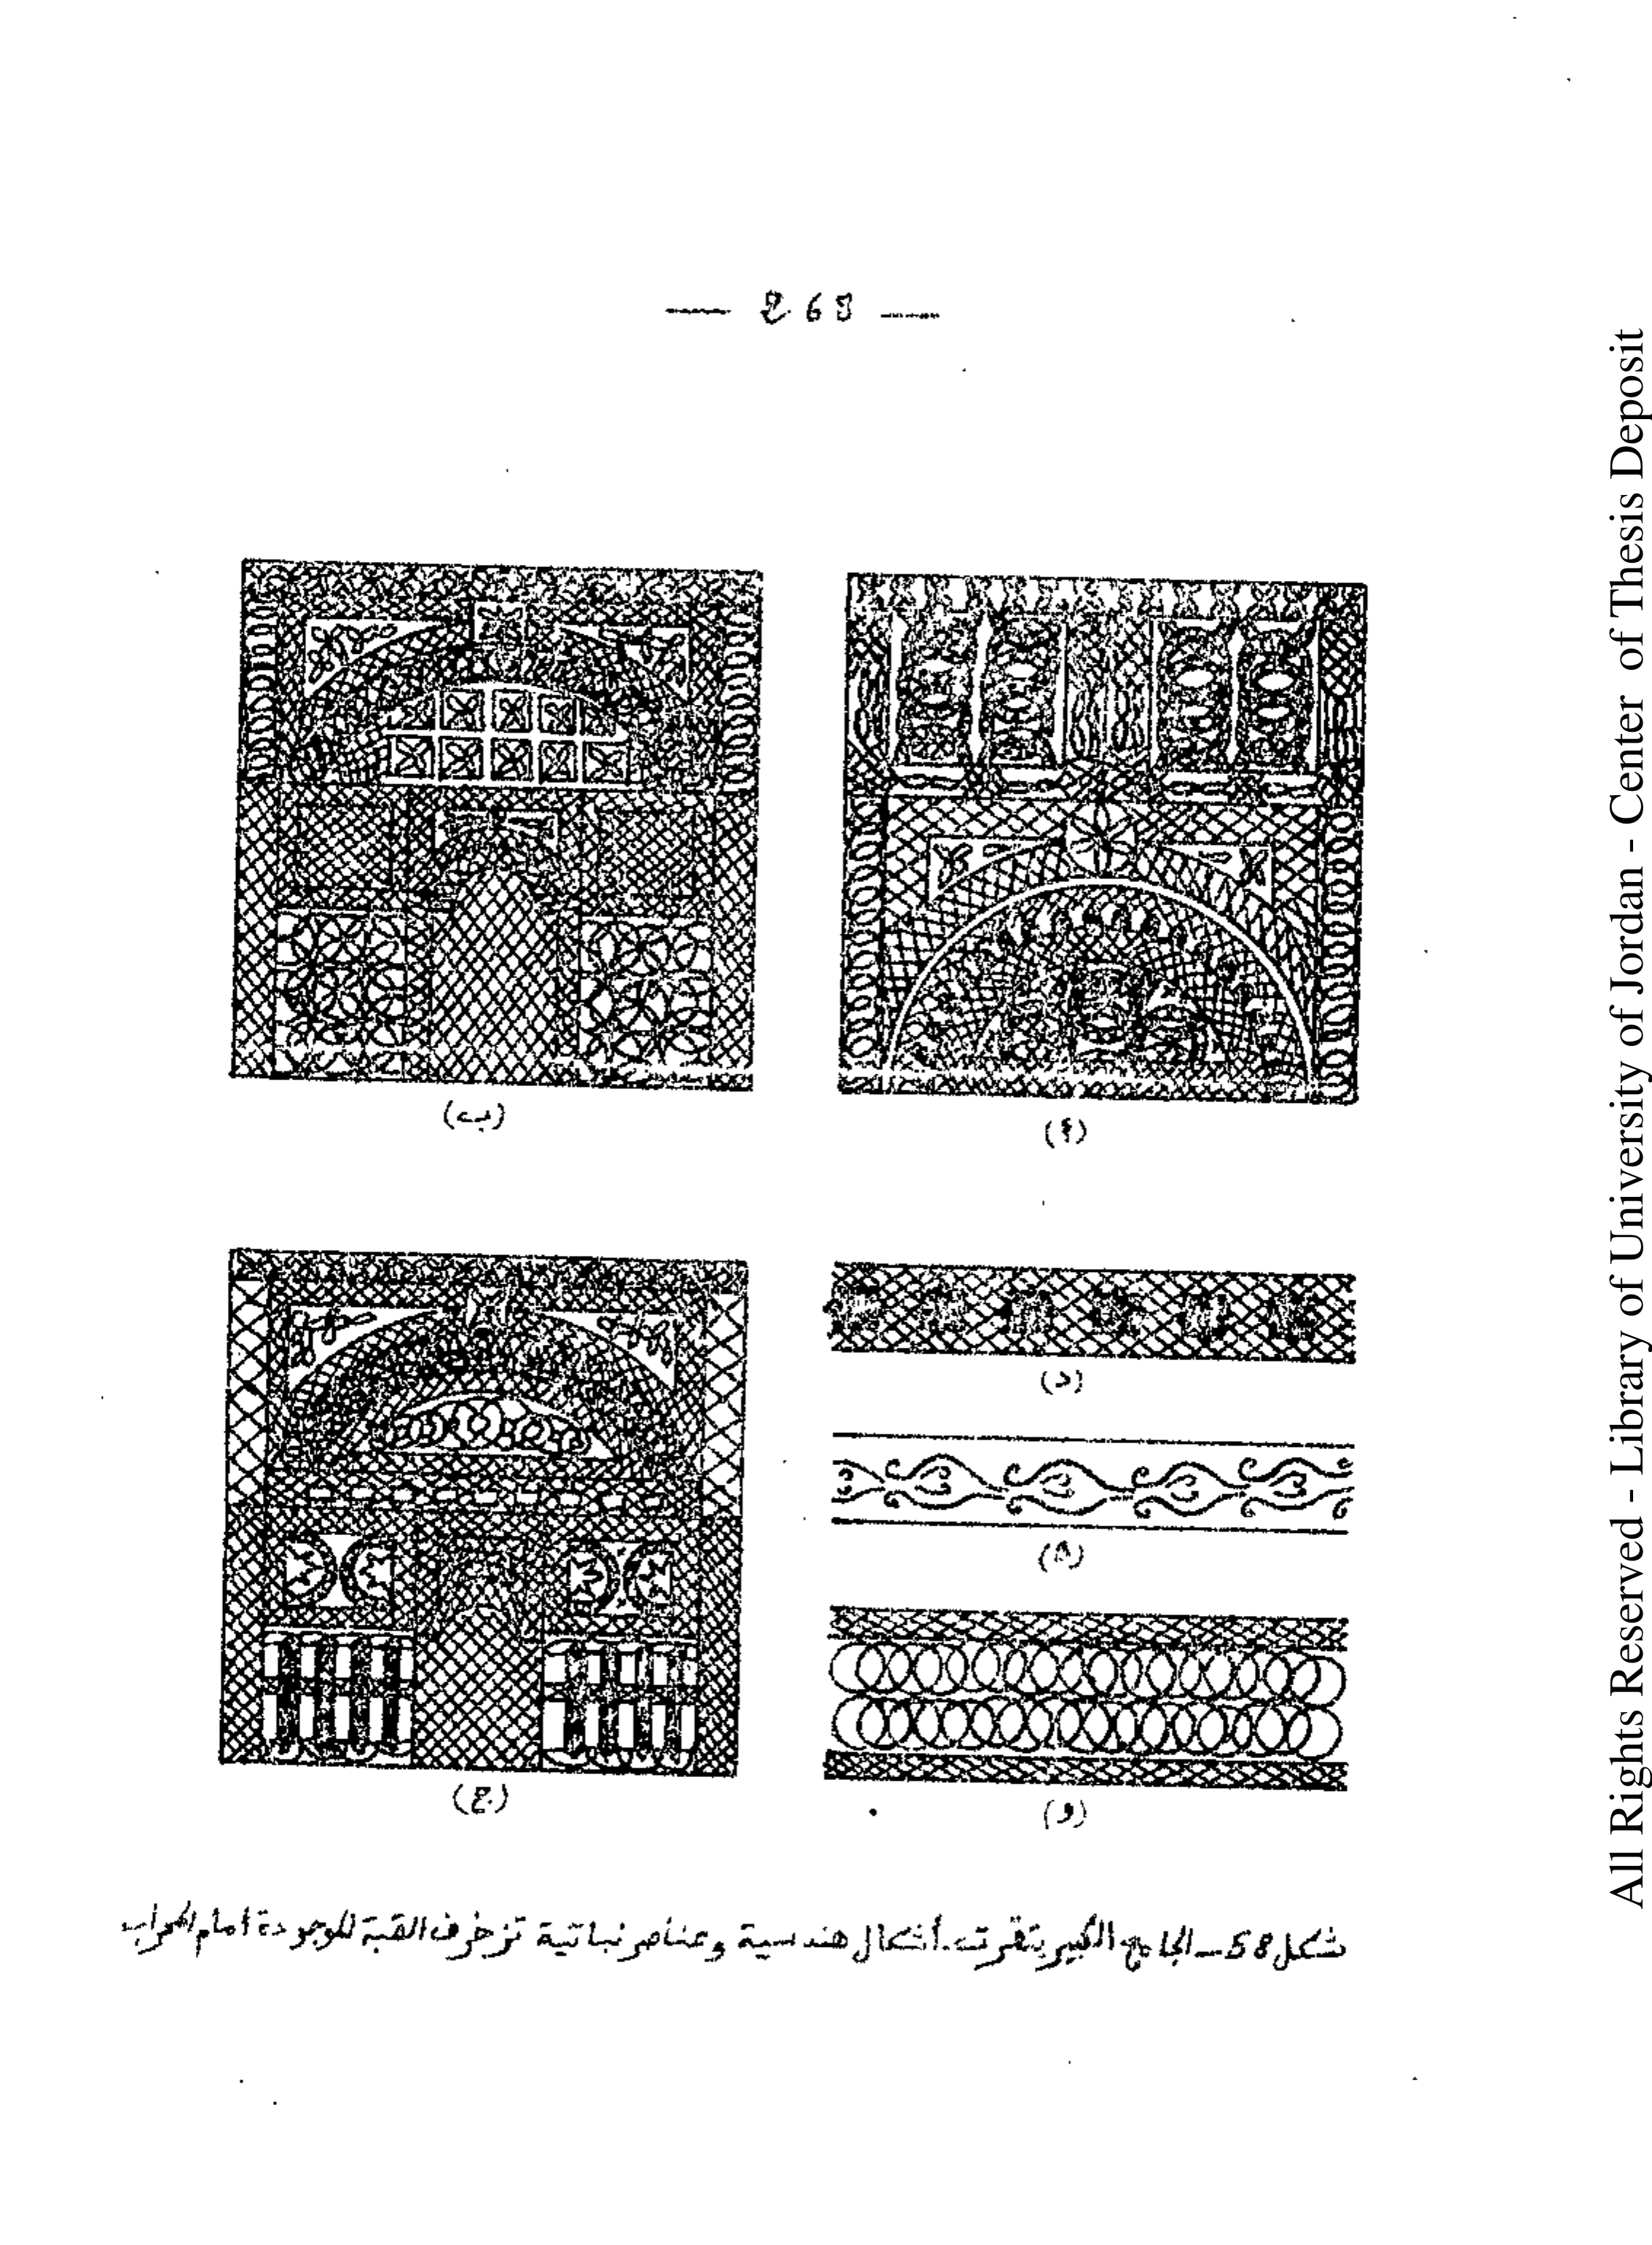 — 268 —
(أ)
(ب)
(د)
(هـ)
(ج)
(و)
شكل 58 – الجامع الكبير بتقرت. أشكال هندسية وعناصر نباتية تزخرف القبة الموجودة أمام المحراب
All Rights Reserved - Library of University of Jordan - Center of Thesis Deposit